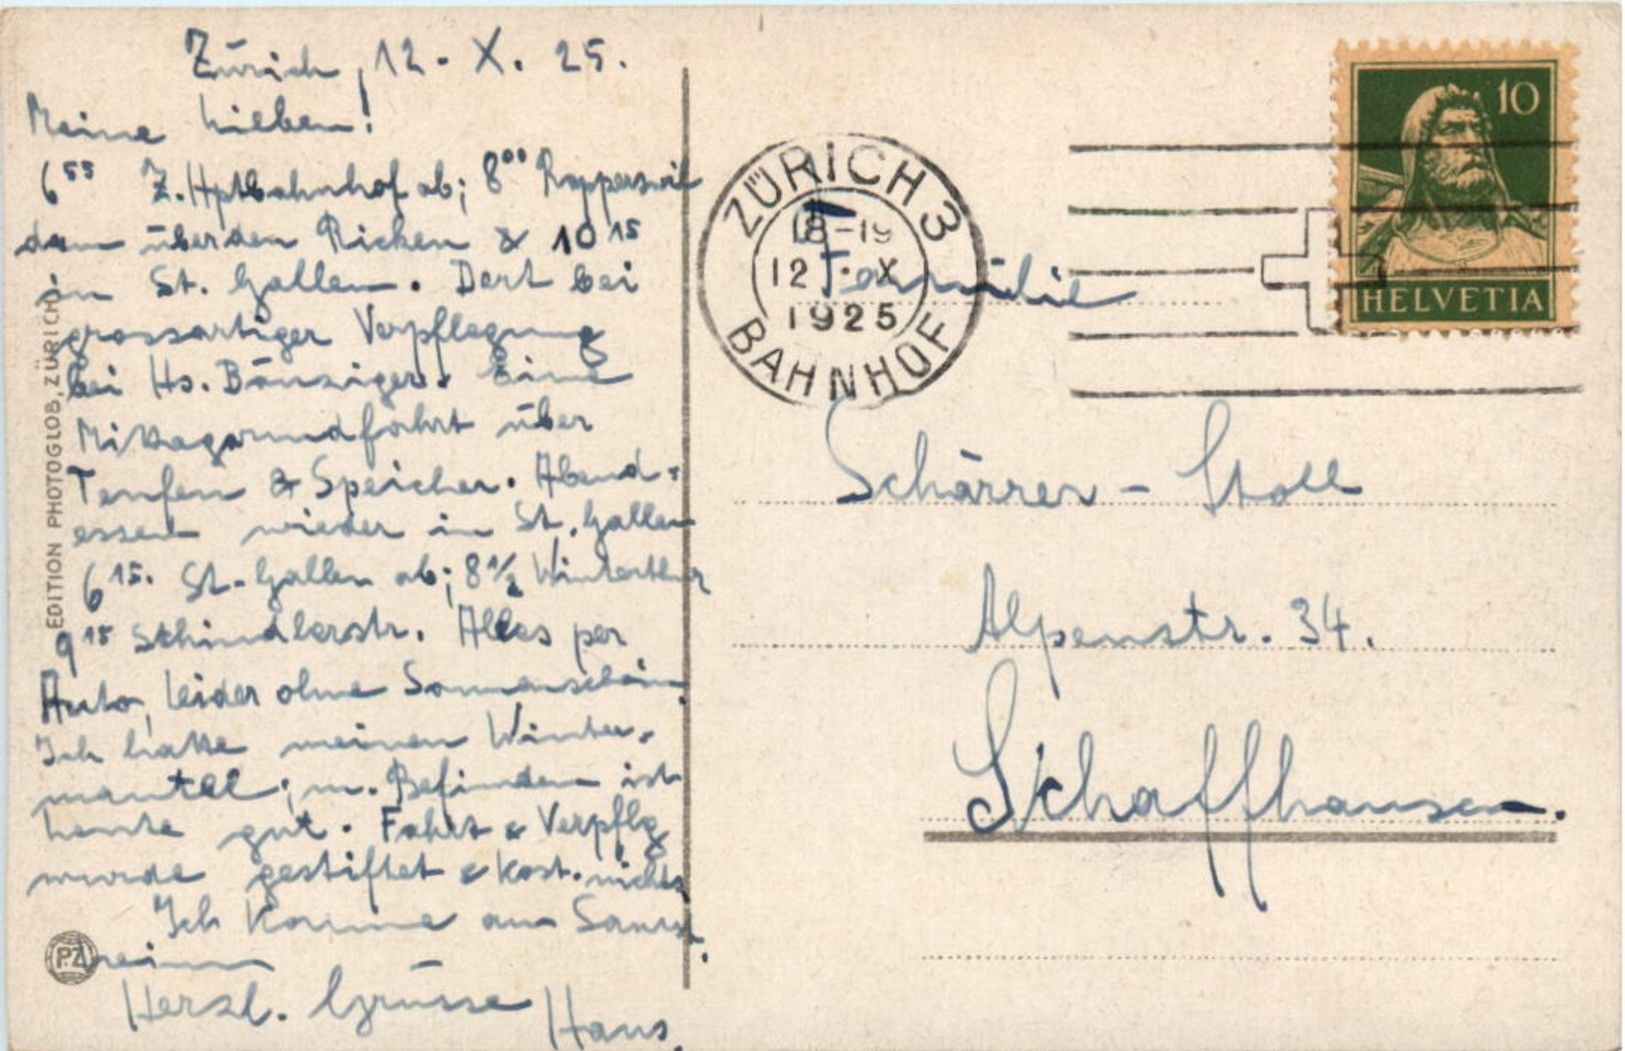 Zürich, 12. X. 25.
Meine Lieben!
6⁵⁵ Z. Hptbahnhof ab; 8⁰⁰ Rapperswil
dann über den Ricken & 10¹⁵
in St. Gallen. Dort bei
grossartiger Verpflegung
bei Hs. Bänziger. Eine
Mittagsrundfahrt über
Teufen & Speicher. Abend-
essen wieder in St. Gallen
6¹⁵. St. Gallen ab; 8 1/2 Winterthur
9¹⁵ Schindlerstr. Alles per
Auto, leider ohne Sonnenschein.
Ich hatte meinen Winter-
mantel; m. Befinden ist
heute gut. Fahrt & Verpflg
wurde gestiftet & kost. nichts
Ich komme am Samst.
heim
Herzl. Grüsse Hans.
EDITION PHOTOGLOB, ZÜRICH
P.Z
ZÜRICH 3
18-19
12 X
1925
BAHNHOF
10
HELVETIA
Familie
Schärrer - Stoll
Alpenstr. 34.
Schaffhausen.